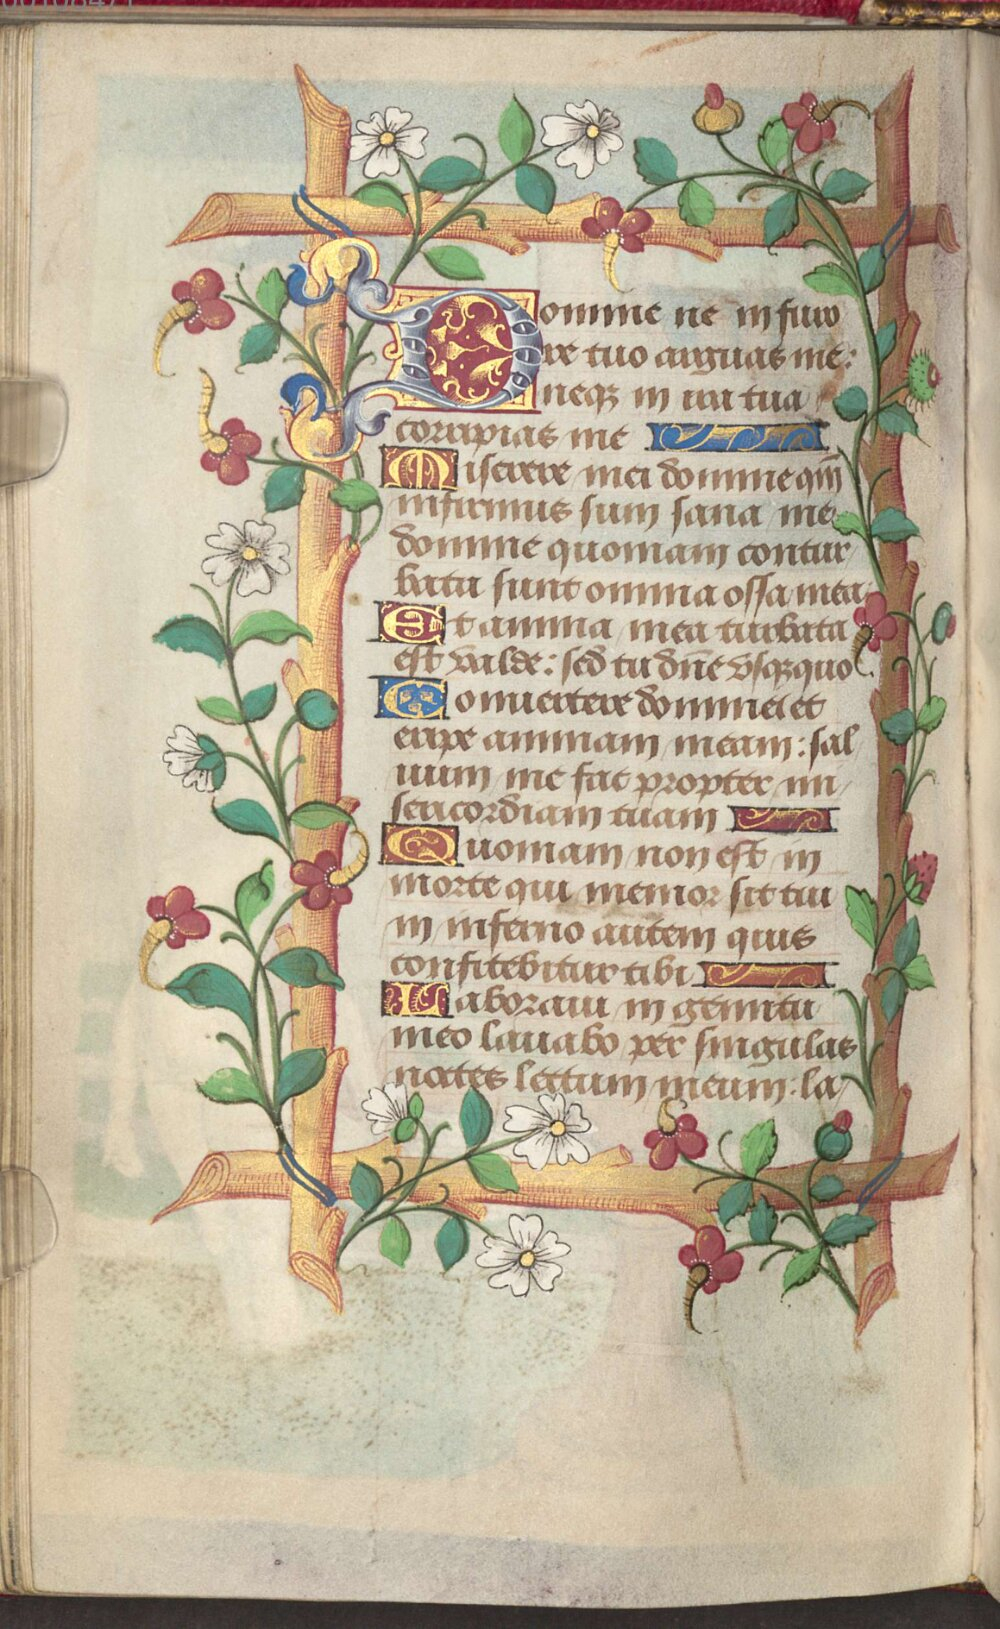 Domine ne in furo
re tuo arguas me:
neqȝ in ira tua
corripias me
Miserere mei domine qm̄
infirmus sum sana me
domine quoniam contur
bata sunt omnia ossa mea
Et anima mea turbata
est valde: sed tu dn̄e vsqȝquo
Conuertere domine et
eripe animam meam: sal
uum me fac propter mi
sericordiam tuam
Quoniam non est in
morte qui memor sit tui
in inferno autem quis
confitebitur tibi
Laboraui in gemitu
meo lauabo per singulas
noctes lectum meum: la